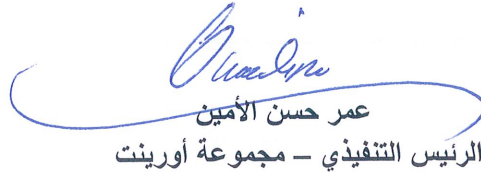 عمر حسن الأمين
الرئيس التنفيذي – مجموعة أورينت